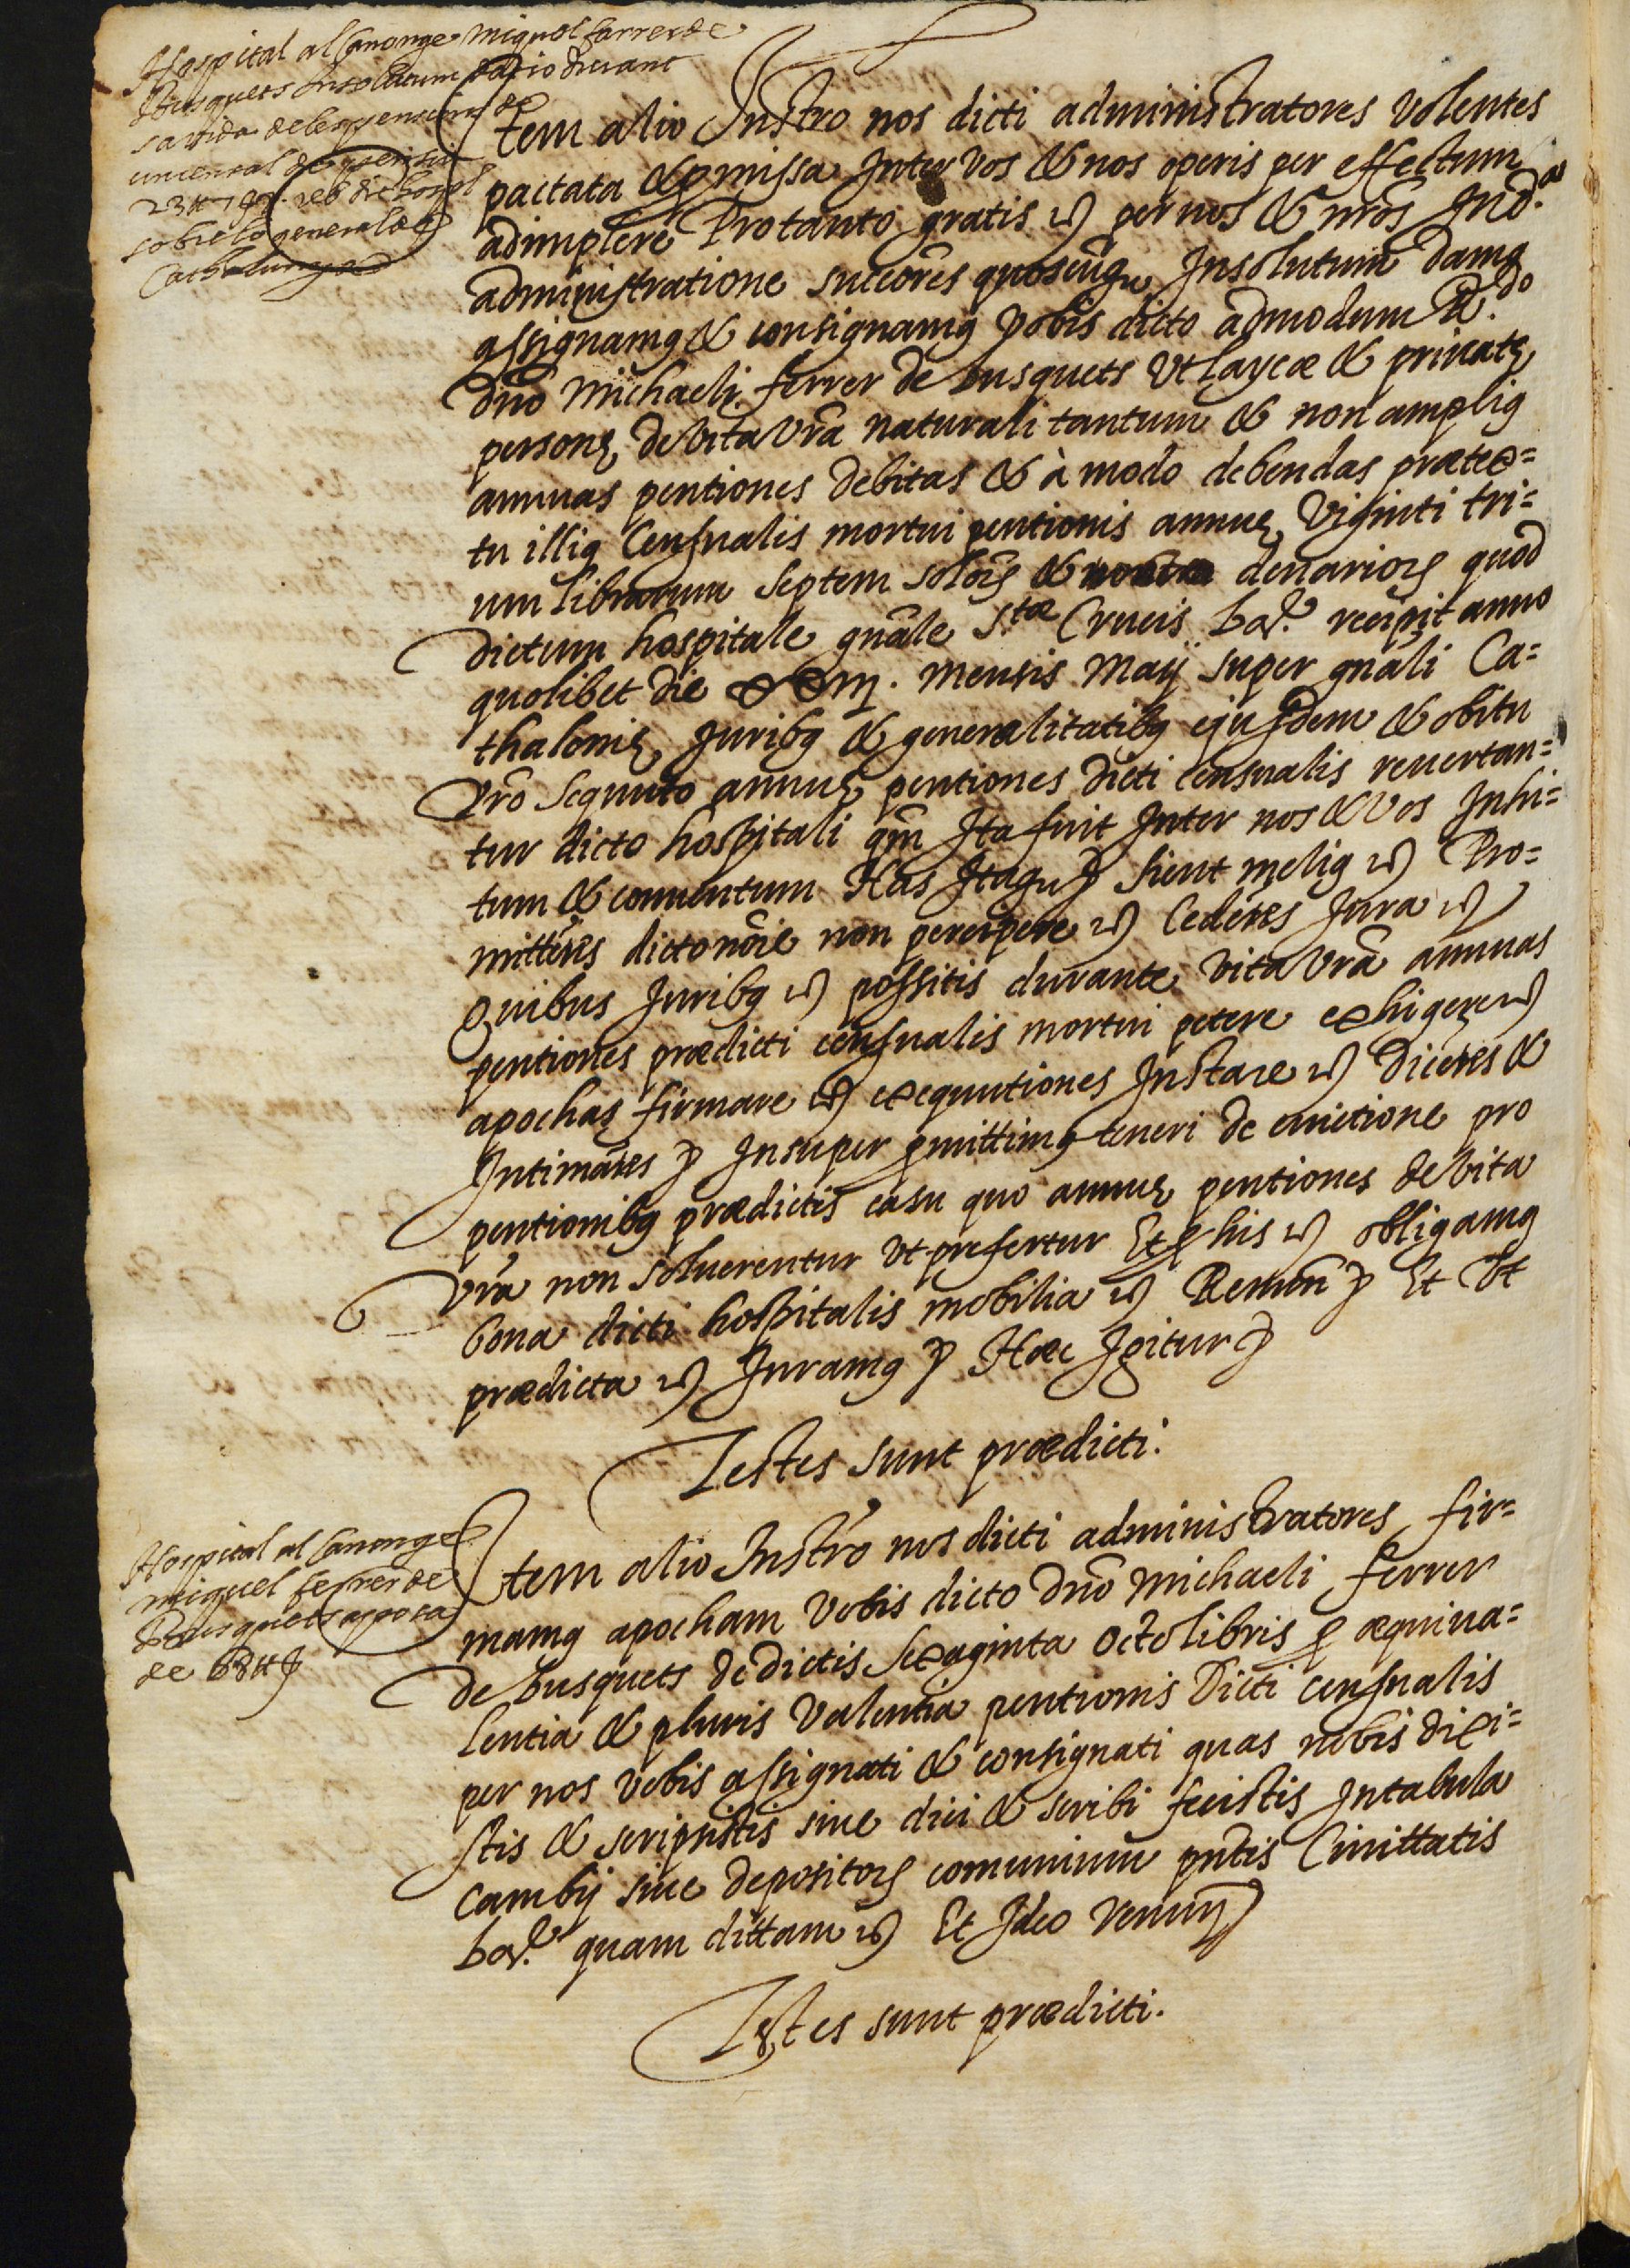 Hospital al Canonge miquel ferrer de
Busquets Insolutum datio durant
sa vida de les pensions de
un censal de pensio
23 ₶ 7 s 9 reb dit hospl
sobre lo general de
Cathalunya
Item alio Instro nos dicti administratores volentes
pactata & pmissa Inter vos & nos operis per effectum
adimplere Protanto gratis &c per nos & nros In d.ª
administratione succores quoscuq; Insolutum damq
assignamq & consignamq vobis dicto admodum R.do
dno Michaeli ferrer de busquets Ut laycæ & privatę
personę de vita vra naturali tantum & non ampliq
annuas pentiones debitas & à modo debendas prætex=
tu illiq Censualis mortui pentionis annuę Viginti tri=
um librarum septem solors & denariors quod
dictum hospitale gnale S.tæ Crucis bar.e recipit anno
quolibet die mensis Maij super gnali Ca=
thalonię Juribq & generalitatibq ejusdem & obitu
vro Sequuto annuę pentiones dicti censualis revertan=
tur dicto hospitali qm Ita fuit Inter nos & Vos Inhi=
tum & conventum Has Itaq; &c sicut meliq &c Pro=
mittetes dicto noie non percipere &c Cedetes Jura &c
Quibus Juribq &c possitis durante vita vra annuas
pentiones prædicti censualis mortui petere exhigere &c
apochas firmare &c exequutiones Instare &c Dicetes &
Intimates &c Insuper pmittimq teneri de evictione pro
pentionibq prædictis casu quo annuę pentiones de vita
vra non solverentur Ut prefertur Et p his &c obligamq
bona dicti hospitalis mobilia &c Renun &c Et Ut
prædicta &c Juramq &c Hæc Igitur &c
Testes sunt prædicti.
Hospital al Canonge
miquel ferrer de
Busquets apoca
de 68 ₶ &c
Item alio Instro nos dicti administratores fir=
mamq apocham Vobis dicto dno Michaeli ferrer
de busquets de dictis Sexaginta octo libris p æquiva=
lentia & pluris Valentia pentionis Dicti censualis
per nos Vobis assignati & consignati quas nobis dixi=
stis & scripsistis sive dici & scribi fecistis In tabula
Cambij sive depositors comunium pntis Civittatis
bar.e quam dittam &c Et Ideo renun &c
Testes sunt prædicti.